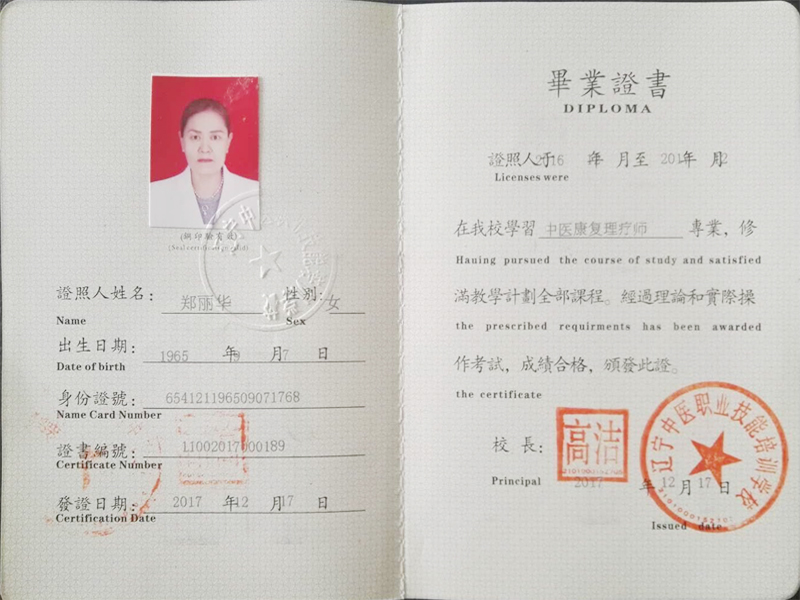 (鋼印驗真效)
(Seal certification valid)
證照人姓名：郑丽华 性别：女
Name Sex
出生日期：1965 年9 月7 日
Date of birth
身份證號：654121196509071768
Name Card Number
證書編號：LI002017000189
Certificate Number
發證日期：2017 年12 月17 日
Certification Date
畢業證書
DIPLOMA
證照人于2016 年 月至 201 年 月12
Licenses were
在我校學習 中医康复理疗师 專業，修
Hauing pursued the course of study and satisfied
滿教學計劃全部課程。經過理論和實際操
the prescribed requirments has been awarded
作考試，成績合格，頒發此證。
the certificate
校長：高洁
Principal 2017 年12月17日
Issued date
辽宁中医职业技能培训学校